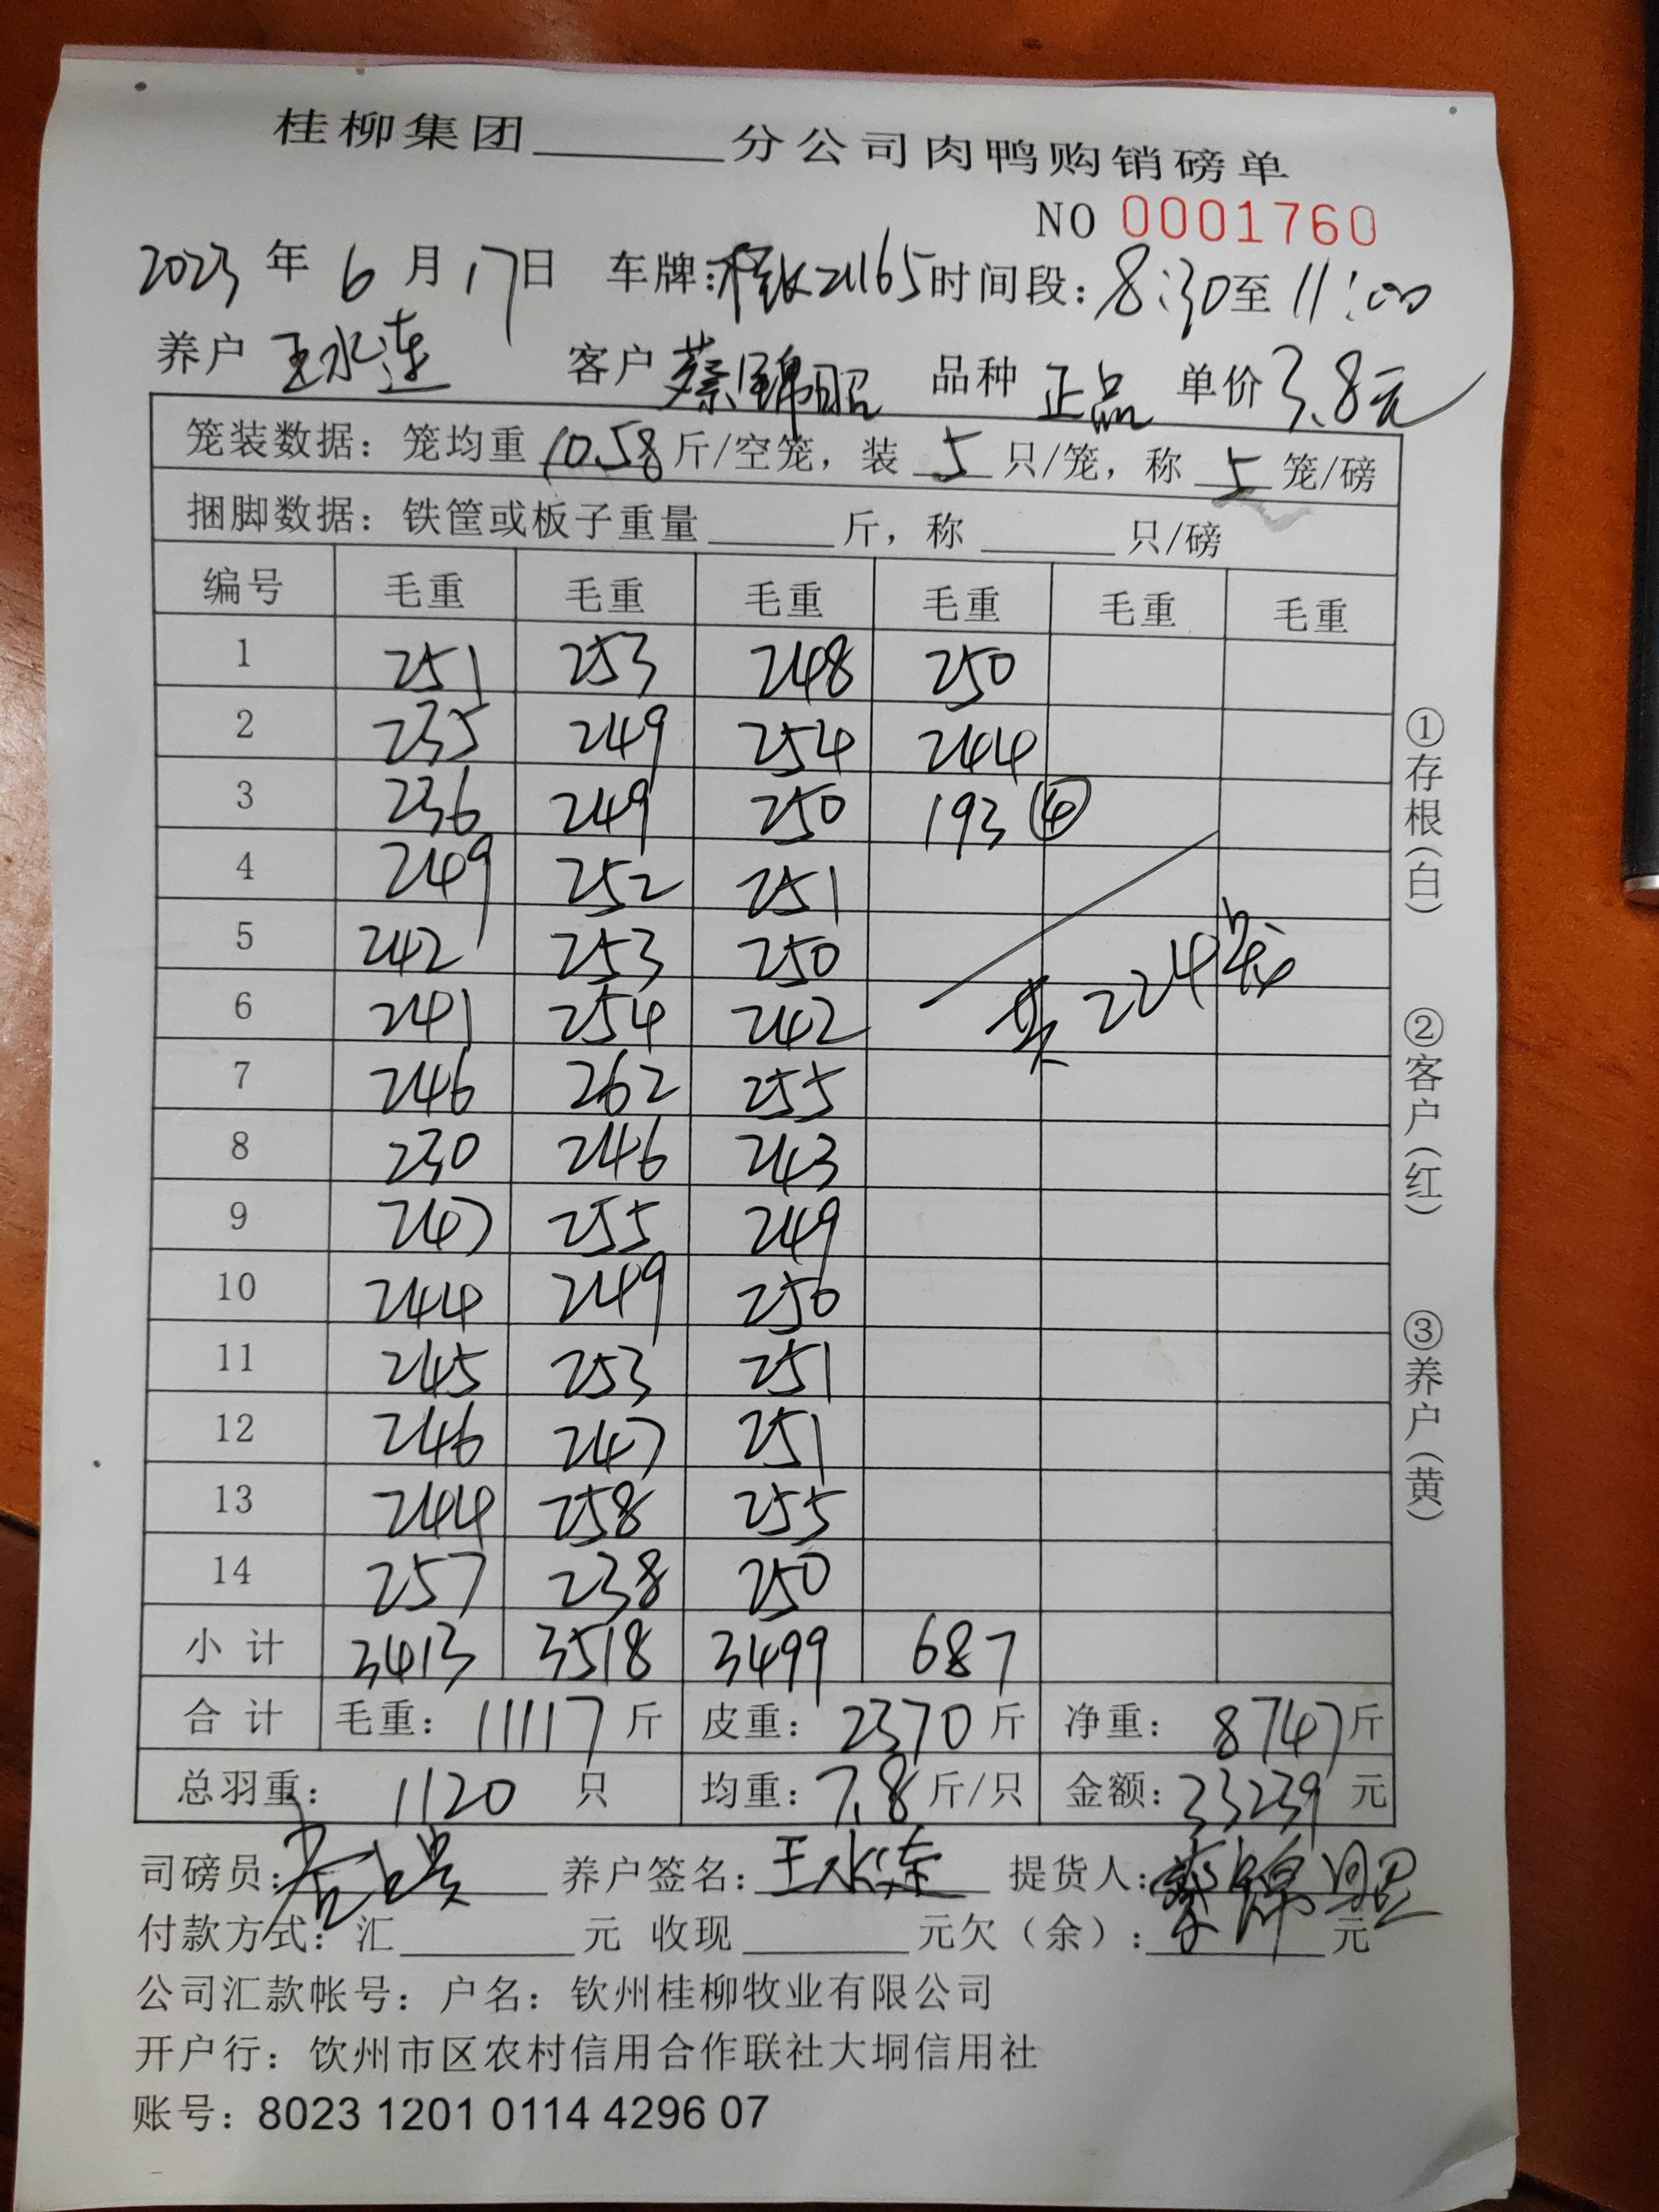 桂柳集团______分公司肉鸭购销磅单
NO 0001760
2023 年 6 月 17日 车牌: 21165 时间段: 8:30 至 11:00
养户 王水连 客户 蔡锦昭 品种 正品 单价 3.8元
笼装数据: 笼均重 10.58 斤/空笼, 装 5 只/笼, 称 5 笼/磅
捆脚数据: 铁筐或板子重量______斤, 称______只/磅
编号 毛重 毛重 毛重 毛重 毛重 毛重
1 251 253 248 250
2 235 249 254 244
3 236 249 250 193 ④
4 249 252 251
5 242 253 250
共224笼
6 241 254 242
7 246 262 255
8 230 246 243
9 247 255 249
10 244 249 250
11 245 253 251
12 246 247 251
13 244 258 255
14 257 238 250
小计 3413 3518 3499 687
合计 毛重: 11117 斤 皮重: 2370 斤 净重: 8747 斤
总羽重: 1120 只 均重: 7.8 斤/只 金额: 33239 元
司磅员: 养户签名: 王水连 提货人: 蔡锦昭
付款方式: 汇______元 收现______元欠(余):______元
公司汇款帐号: 户名: 钦州桂柳牧业有限公司
开户行: 钦州市区农村信用合作联社大垌信用社
账号: 8023 1201 0114 4296 07
①存根(白)
②客户(红)
③养户(黄)